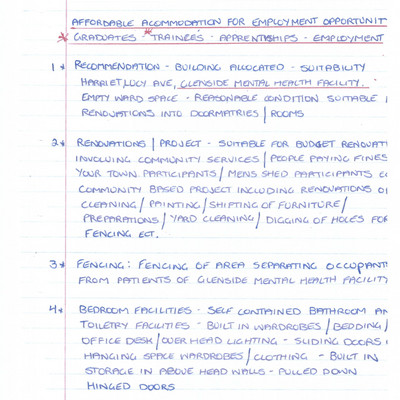 AFFORDABLE ACOMMODATION FOR EMPLOYMENT OPPORTUNIT
* GRADUATES * TRAINEES - APPRENTISHIPS - EMPLOYMENT
1 * RECOMMENDATION - BUILDING ALLOCATED - SUITABILITY
HARRIET LUCY AVE, GLENSIDE MENTAL HEALTH FACILITY.
EMPTY WARD SPACE - REASONABLE CONDITION SUITABLE
RENOVATIONS INTO DOORMATRIES / ROOMS
2 * RENOVATIONS / PROJECT - SUITABLE FOR BUDGET RENOVATI
INVOLVING COMMUNITY SERVICES / PEOPLE PAYING FINES
YOUR TOWN PARTICIPANTS / MENS SHED PARTICIPANTS EC
COMMUNITY BASED PROJECT INCLUDING RENOVATIONS O
CLEANING / PAINTING / SHIFTING OF FURNITURE /
PREPARATIONS / YARD CLEANING / DIGGING OF HOLES FOR
FENCING ECT.
3 * FENCING: FENCING OF AREA SEPARATING OCCUPANT
FROM PATIENTS OF GLENSIDE MENTAL HEALTH FACILITY
4 * BEDROOM FACILITIES - SELF CONTAINED BATHROOM AN
TOILETRY FACILITIES - BUILT IN WARDROBES / BEDDING /
OFFICE DESK / OVER HEAD LIGHTING - SLIDING DOORS
HANGING SPACE WARDROBES / CLOTHING - BUILT IN
STORAGE IN ABOVE HEAD WALLS - PULLED DOWN
HINGED DOORS